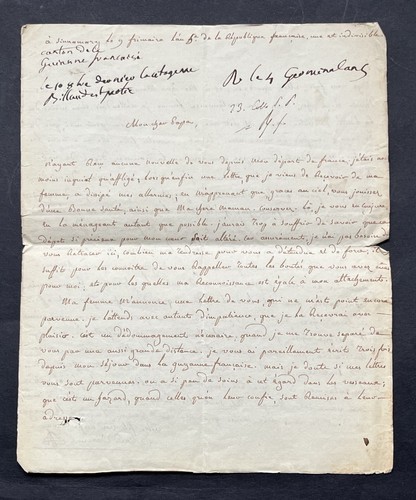 à sinnamary le 9 frimaire l'an 6.e de la République française, une et indivisible
canton de la
Guianne française
R le 4 Germinal an 6
23.
Mon cher Papa
n'ayant Reçu aucune nouvelle de vous depuis Mon départ de france, j'étais aussi
inquiet qu'affligé, lorsqu'enfin une lettre que je viens de Recevoir de ma
femme, a dissipé mes allarmes, en m'apprenant que graces au ciel, vous jouissez
d'une Bonne santé, ainsi que Ma chère Maman, conservez la, je vous en conjure
en la ménageant autant que possible. j'aurais Trop à souffrir de savoir qu'un
dépôt si précieux pour mon cœur fut altéré. assurément, je n'ai pas besoin de
vous Retracer ici, combien ma Tendresse pour vous a d'étendue et de force, il
suffit pour les connaitre de vous Rappeller Toutes les bontés que vous avez eues
pour moi, et pour lesquelles ma Reconnoissance est égale à mon attachement.
Ma femme m'annonce une lettre de vous, qui ne m'est point encore
parvenue. je l'attends avec autant d'impatience, que je la Recevrai avec
plaisir. c'est un dédommagement nécessaire, quand je me Trouve séparé de
vous par une aussi grande distance. je vous ai pareillement écrit Trois fois
depuis mon séjour dans la guyanne française, mais je doute si mes lettres
vous sont parvenues. on a si peu de soins à cet égard dans les bureaux,
que c'est un hazard, quand celles qu'on leur confie, sont Remises à leur
adresse.